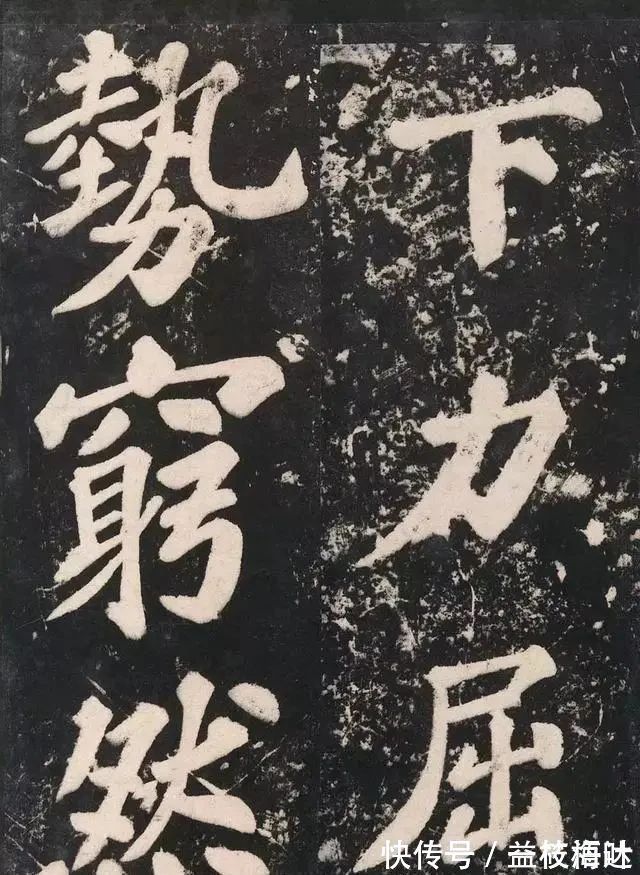 下力屈
勢窮然
快传号/益枝梅吐